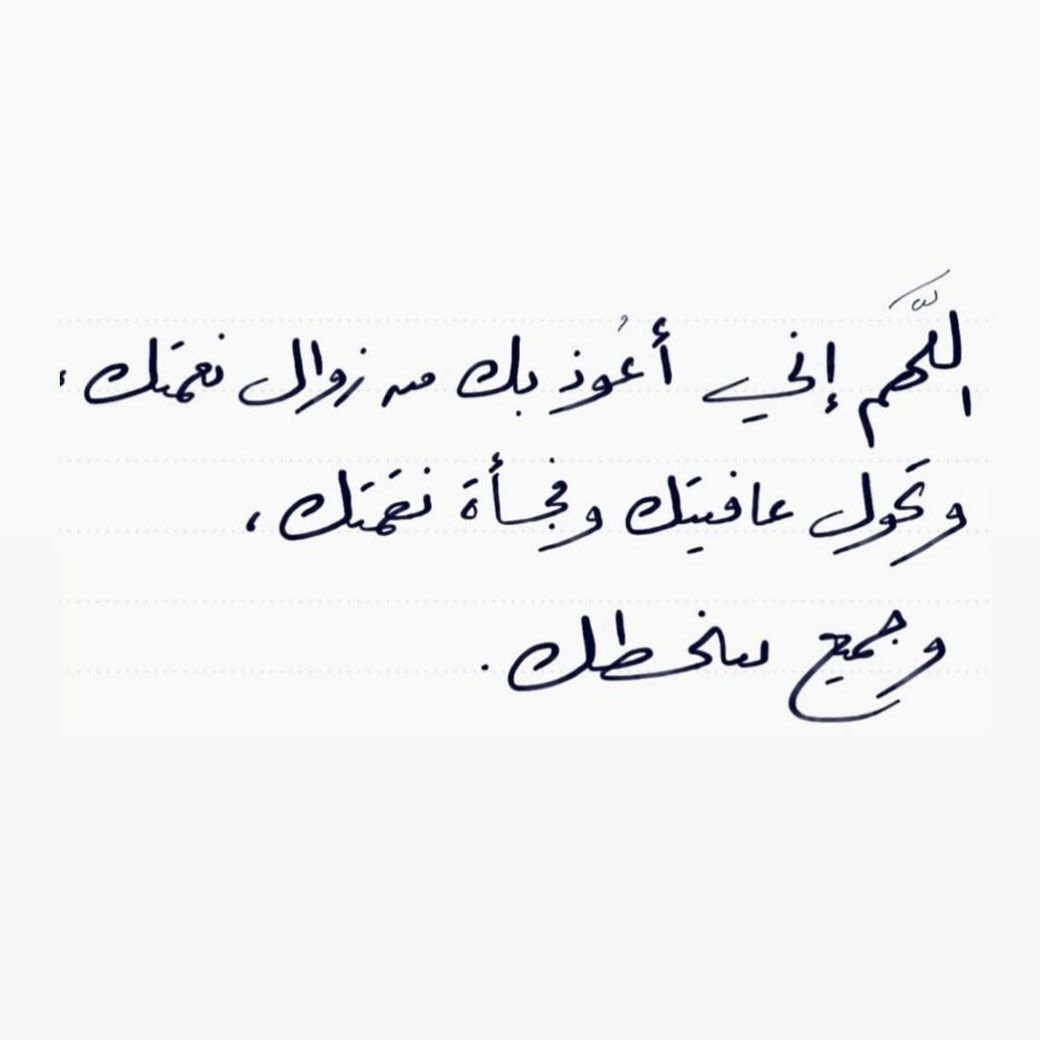 اللَّهم إني أعُوذ بك من زوال نعمتك،
وتحَول عافيتك وفجأة نقمتك،
وجميع سخطك.